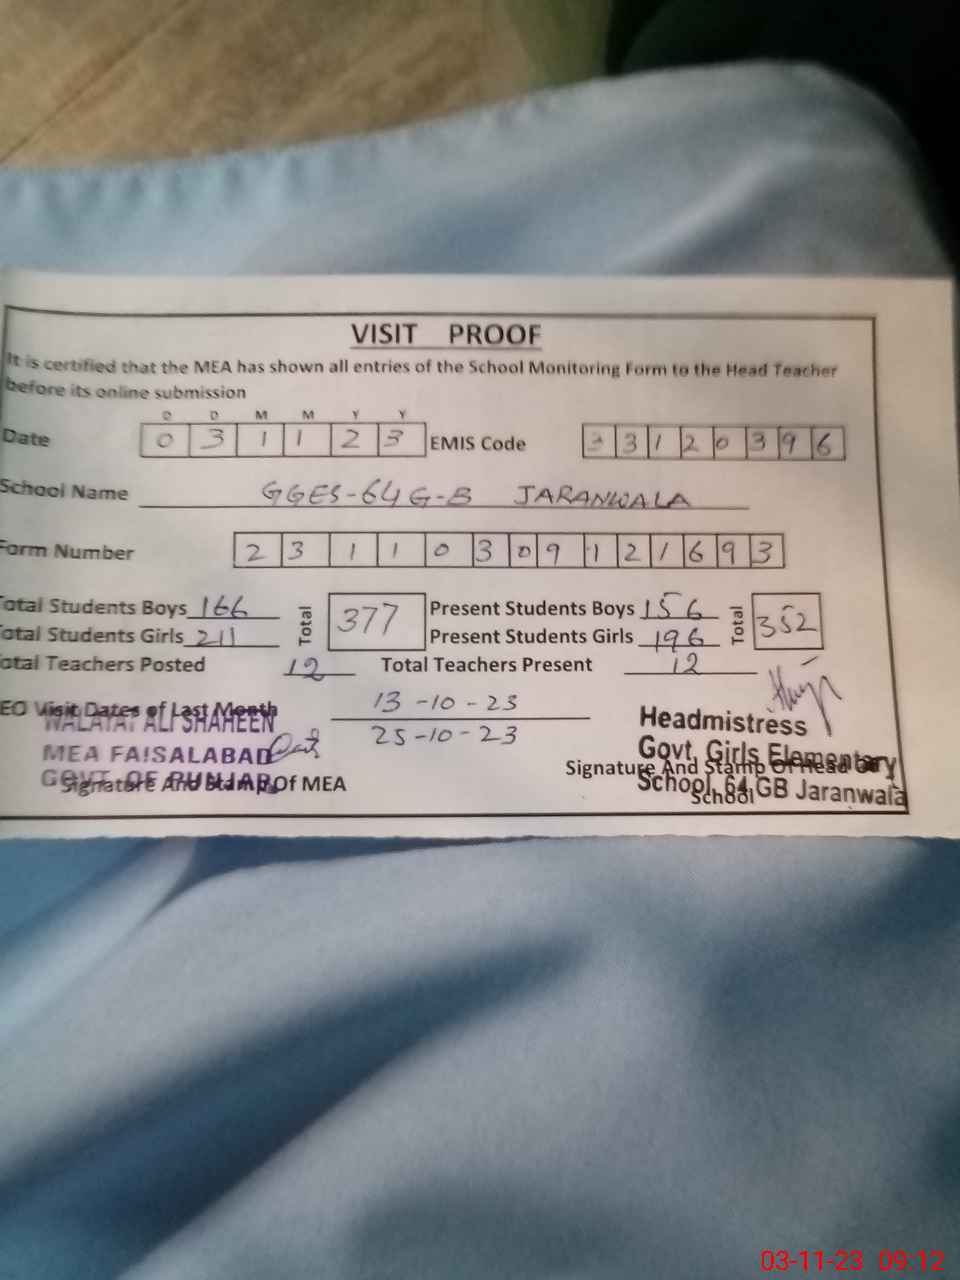 VISIT PROOF
It is certified that the MEA has shown all entries of the School Monitoring Form to the Head Teacher
before its online submission
D D M M Y Y
Date 0 3 1 1 2 3 EMIS Code 3 3 1 2 0 3 9 6
School Name GGES-64 G-B JARANWALA
Form Number 2 3 1 1 0 3 0 9 1 2 1 6 9 3
Total Students Boys 166 Total 377 Present Students Boys 156 Total 352
Total Students Girls 211 Present Students Girls 196
Total Teachers Posted 12 Total Teachers Present 12
EO Visit Dates of Last Month 13-10-23
25-10-23
WALAYAT ALI SHAHEEN
MEA FAISALABAD
GOVT. OF PUNJAB
Signature And Stamp Of MEA
Headmistress
Govt. Girls Elementary
School, 64 GB Jaranwala
Signature And Stamp Of Head Of
School
03-11-23 09:12